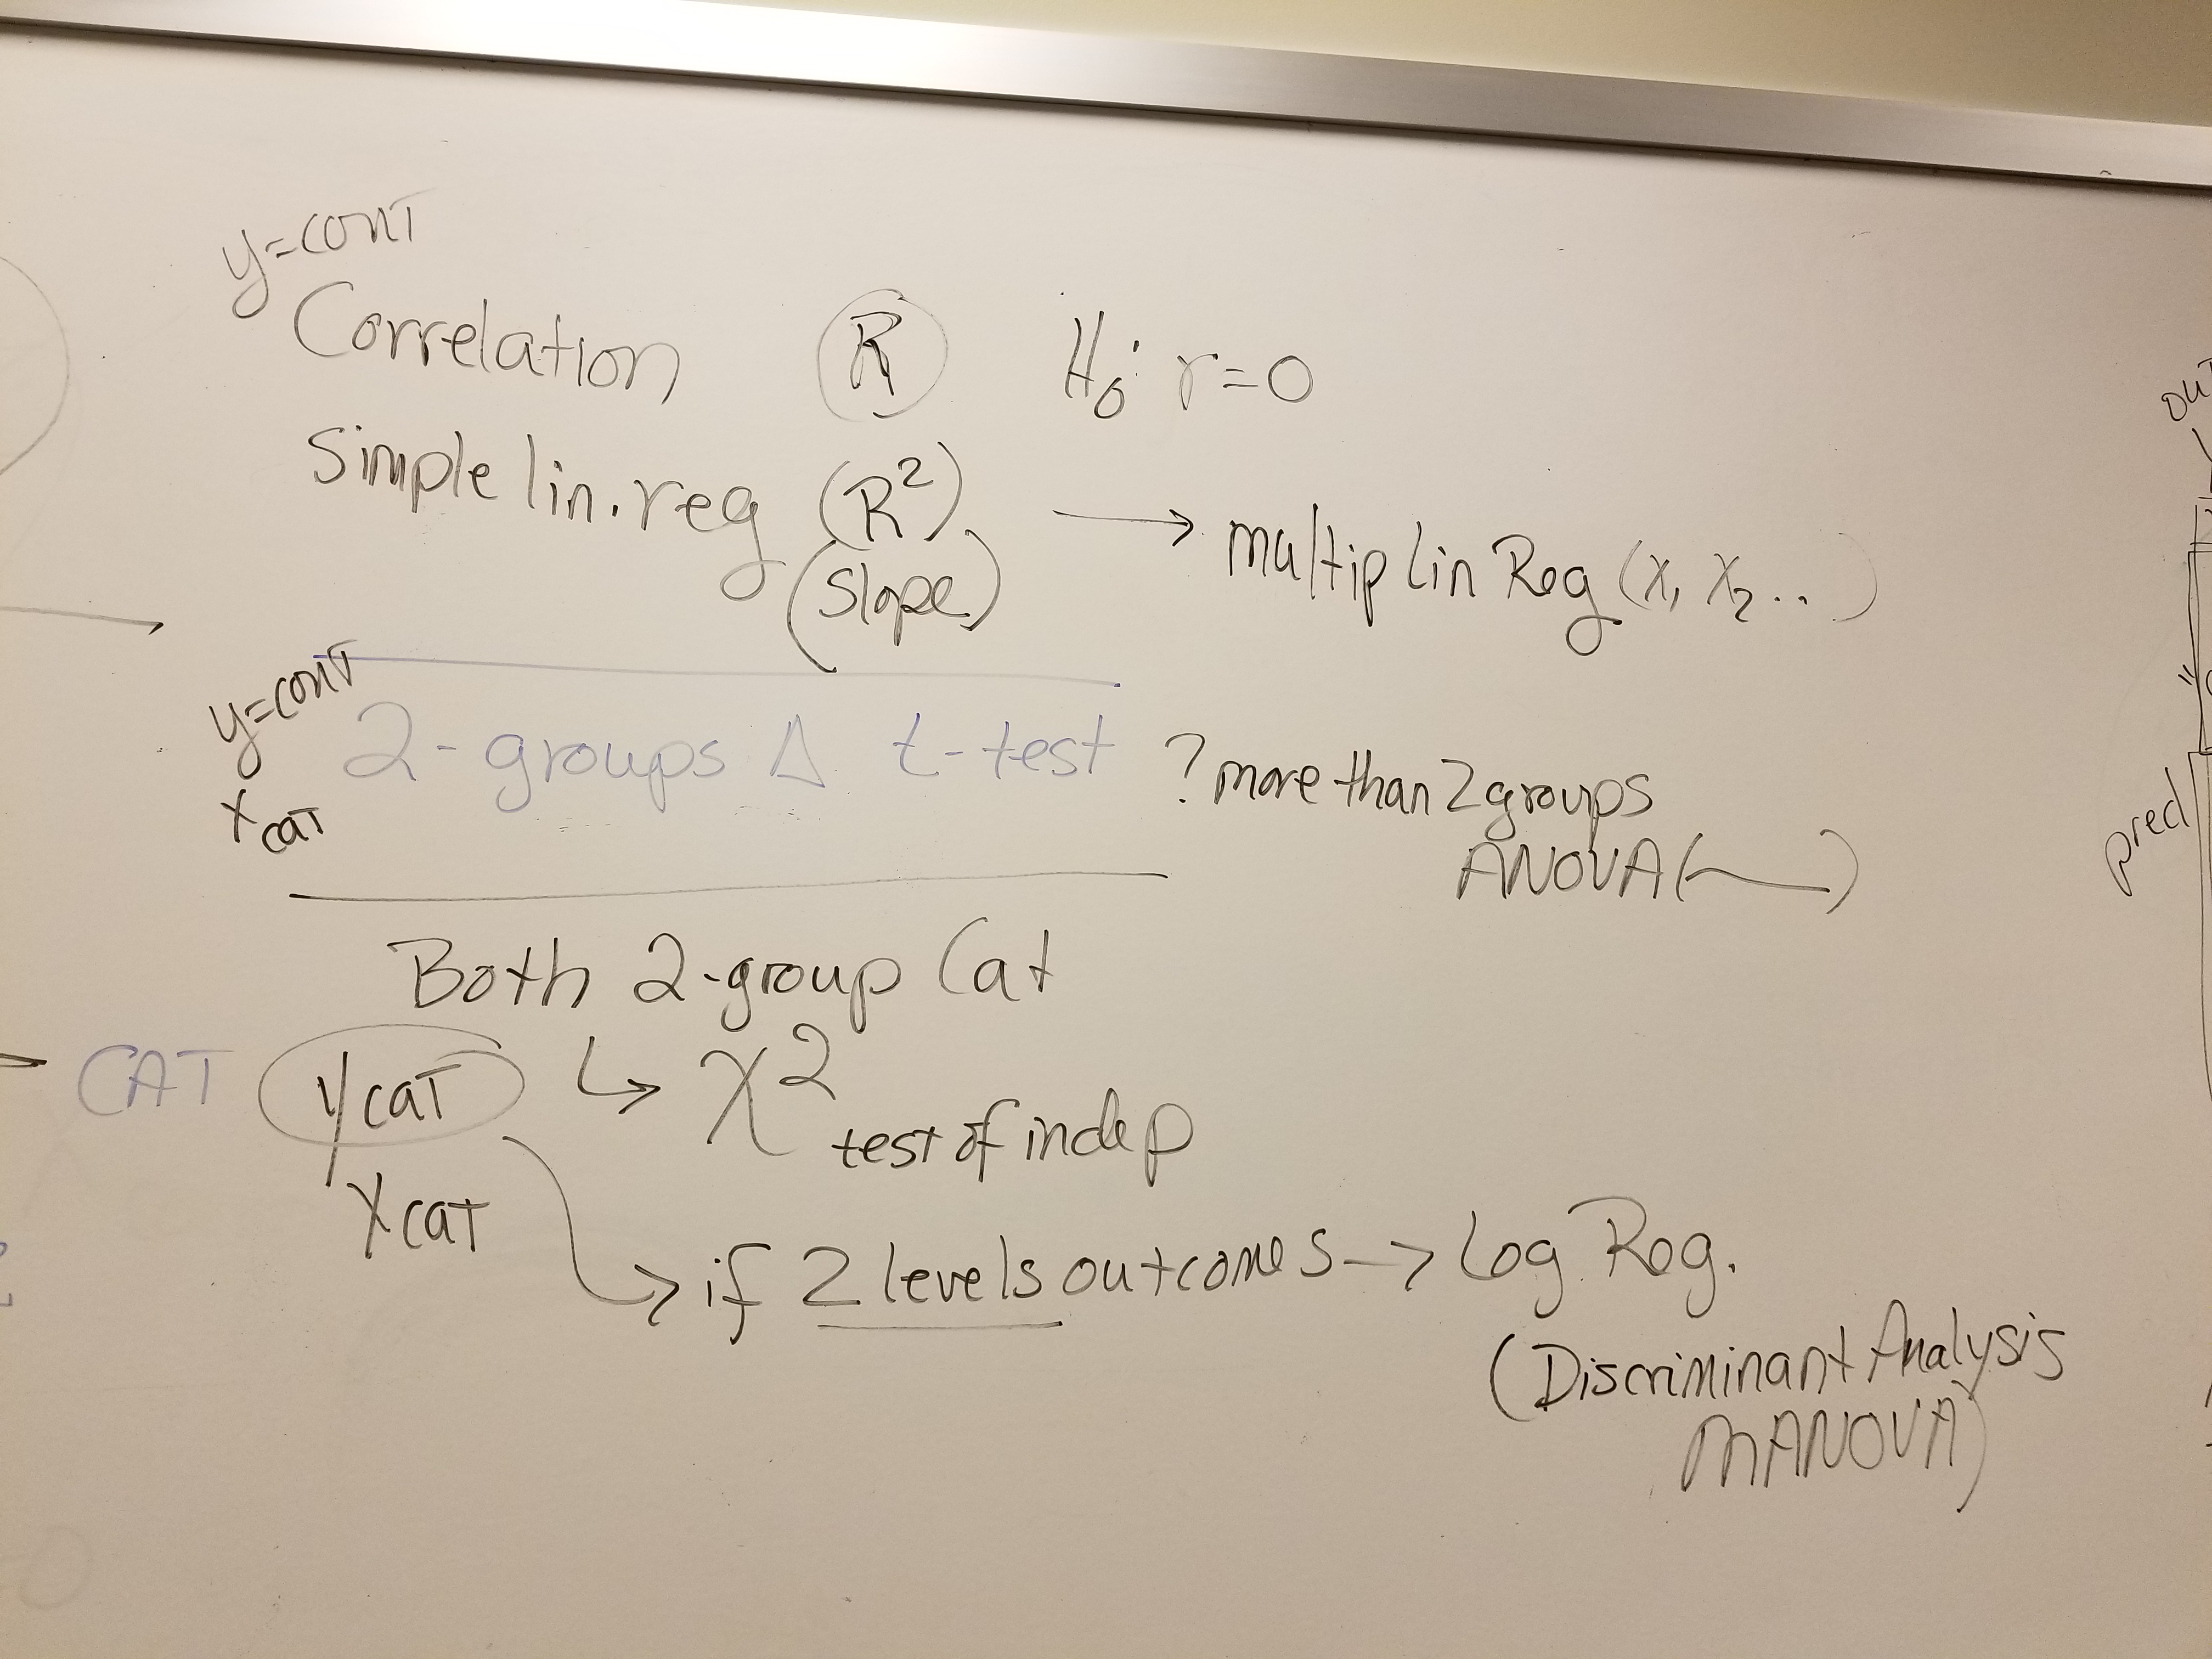 y=cont
Correlation R H₀: r=0
Simple lin.reg (R²), (Slope) → multip Lin Reg (x₁ x₂...)
y=cont
2-groups Δ t-test ? more than 2 groups
xcat
ANOVA ( )
Both 2-group Cat
CAT ycat ↳ χ² test of indep
xcat
→ if 2 levels outcomes → Log Reg.
(Discriminant Analysis
MANOVA)
out
pred